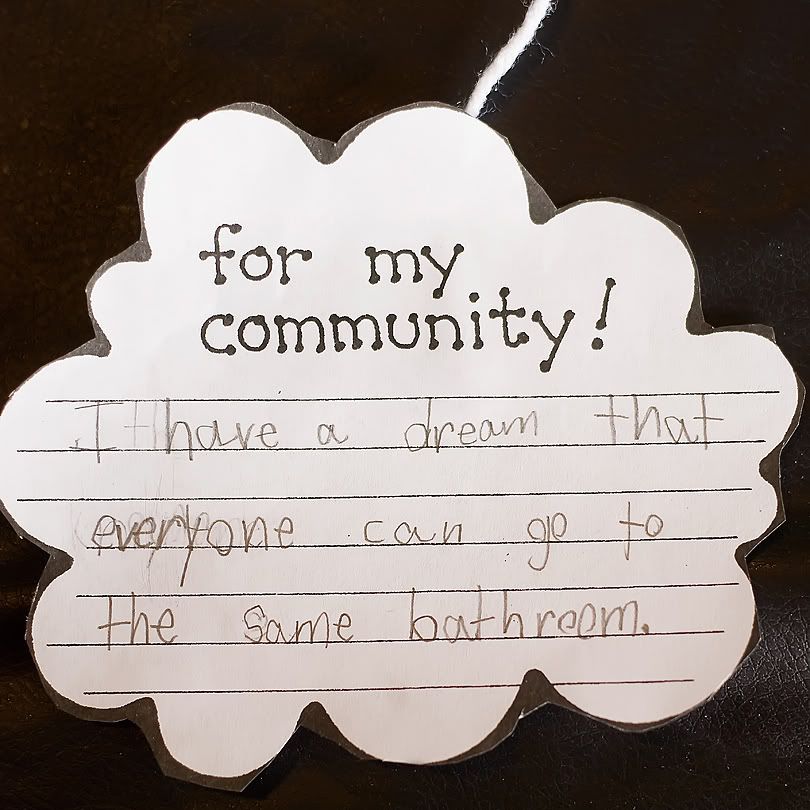 for my
community!
I have a dream that
everyone can go to
the same bathroom.